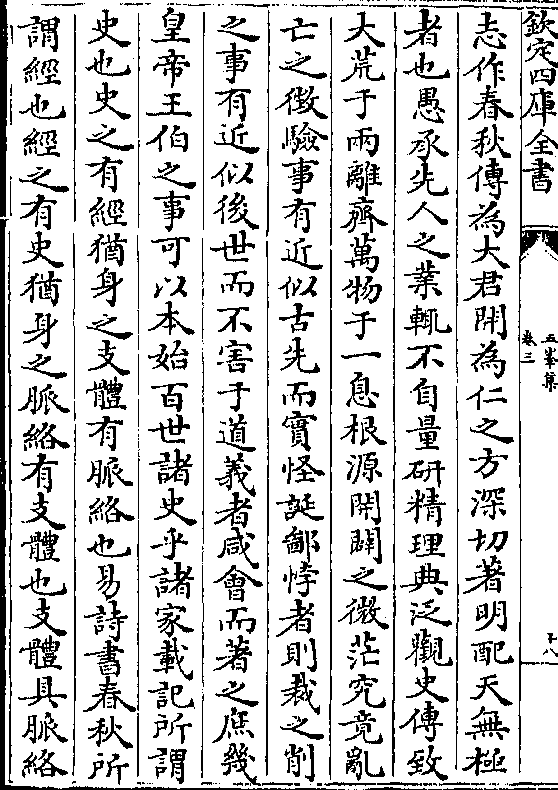 欽定四庫全書
五峯集
卷三
十八
志作春秋傳為大君開為仁之方深切著明配天無極
者也愚承先人之業輒不自量研精理典泛觀史傳致
大荒于兩離齊萬物于一息根源開闢之微茫究竟亂
亡之徴驗事有近似古先而實怪誕鄙悖者則裁之削
之事有近似後世而不害于道義者咸會而著之庶幾
皇帝王伯之事可以本始百世諸史乎諸家載記所謂
史也史之有經猶身之支體有脈絡也易詩書春秋所
謂經也經之有史猶身之脈絡有支體也支體具脈絡